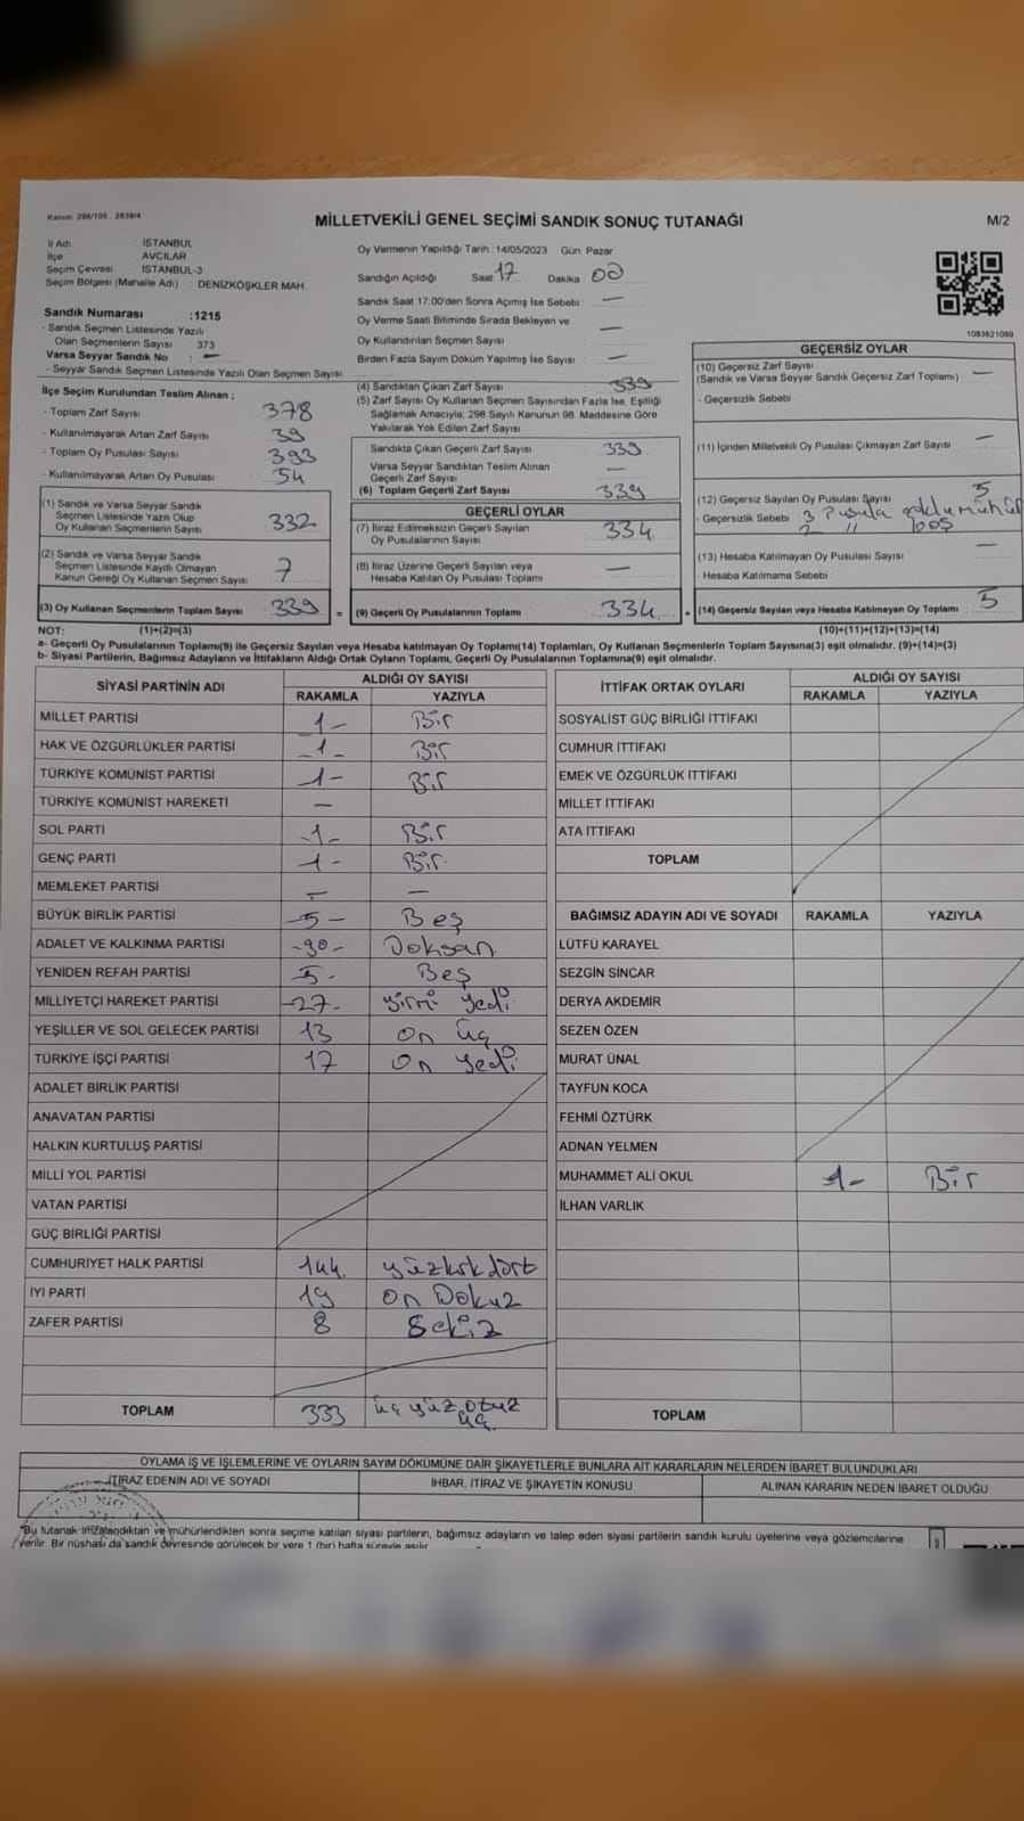 Kanun: 298/105 - 2839/4
MİLLETVEKİLİ GENEL SEÇİMİ SANDIK SONUÇ TUTANAĞI
M/2
İl Adı İSTANBUL
İlçe AVCILAR
Seçim Çevresi İSTANBUL-3
Seçim Bölgesi (Mahalle Adı) DENİZKÖŞKLER MAH.
Sandık Numarası :1215
- Sandık Seçmen Listesinde Yazılı
Olan Seçmenlerin Sayısı 373
Varsa Seyyar Sandık No : —
- Seyyar Sandık Seçmen Listesinde Yazılı Olan Seçmen Sayısı
Oy Vermenin Yapıldığı Tarih :14/05/2023 Gün: Pazar
Sandığın Açıldığı Saat 17 Dakika 00
Sandık Saat 17:00'den Sonra Açımış İse Sebebi —
Oy Verme Saati Bitiminde Sırada Bekleyen ve
Oy Kullandırılan Seçmen Sayısı —
Birden Fazla Sayım Döküm Yapılmış İse Sayısı —
1083621089
İlçe Seçim Kurulundan Teslim Alınan ;
- Toplam Zarf Sayısı 378
- Kullanılmayarak Artan Zarf Sayısı 39
- Toplam Oy Pusulası Sayısı 393
- Kullanılmayarak Artan Oy Pusulası 54
(1) Sandık ve Varsa Seyyar Sandık
Seçmen Listesinde Yazılı Olup
Oy Kullanan Seçmenlerin Sayısı 332
(2) Sandık ve Varsa Seyyar Sandık
Seçmen Listesinde Kayıtlı Olmayan
Kanun Gereği Oy Kullanan Seçmen Sayısı 7
(3) Oy Kullanan Seçmenlerin Toplam Sayısı 339 =
(4) Sandıktan Çıkan Zarf Sayısı 339
(5) Zarf Sayısı Oy Kullanan Seçmen Sayısından Fazla İse, Eşitliği
Sağlamak Amacıyla; 298 Sayılı Kanunun 98. Maddesine Göre
Yakılarak Yok Edilen Zarf Sayısı
Sandıkta Çıkan Geçerli Zarf Sayısı 339
Varsa Seyyar Sandıktan Teslim Alınan
Geçerli Zarf Sayısı —
(6) Toplam Geçerli Zarf Sayısı 339
GEÇERLİ OYLAR
(7) İtiraz Edilmeksizin Geçerli Sayılan
Oy Pusulalarının Sayısı 334
(8) İtiraz Üzerine Geçerli Sayılan veya
Hesaba Katılan Oy Pusulası Toplamı —
(9) Geçerli Oy Pusulalarının Toplamı 334
GEÇERSİZ OYLAR
(10) Geçersiz Zarf Sayısı —
(Sandık ve Varsa Seyyar Sandık Geçersiz Zarf Toplamı)
- Geçersizlik Sebebi
(11) İçinden Milletvekili Oy Pusulası Çıkmayan Zarf Sayısı —
(12) Geçersiz Sayılan Oy Pusulası Sayısı 5
- Geçersizlik Sebebi 3 Pusula çoklu mühür
2 " boş
(13) Hesaba Katılmayan Oy Pusulası Sayısı —
- Hesaba Katılmama Sebebi
(14) Geçersiz Sayılan veya Hesaba Katılmayan Oy Toplamı 5
NOT: (1)+(2)=(3)
(10)+(11)+(12)+(13)=(14)
a- Geçerli Oy Pusulalarının Toplamı(9) ile Geçersiz Sayılan veya Hesaba katılmayan Oy Toplamı(14) Toplamları, Oy Kullanan Seçmenlerin Toplam Sayısına(3) eşit olmalıdır. (9)+(14)=(3)
b- Siyasi Partilerin, Bağımsız Adayların ve İttifakların Aldığı Ortak Oyların Toplamı, Geçerli Oy Pusulalarının Toplamına(9) eşit olmalıdır.
SİYASİ PARTİNİN ADI ALDIĞI OY SAYISI
RAKAMLA YAZIYLA
MİLLET PARTİSİ 1- Bir
HAK VE ÖZGÜRLÜKLER PARTİSİ -1- Bir
TÜRKİYE KOMÜNİST PARTİSİ 1- Bir
TÜRKİYE KOMÜNİST HAREKETİ —
SOL PARTİ -1- Bir
GENÇ PARTİ 1- Bir
MEMLEKET PARTİSİ — —
BÜYÜK BİRLİK PARTİSİ -5- Beş
ADALET VE KALKINMA PARTİSİ -90- Doksan
YENİDEN REFAH PARTİSİ 5- Beş
MİLLİYETÇİ HAREKET PARTİSİ -27- yirmi yedi
YEŞİLLER VE SOL GELECEK PARTİSİ 13 on üç
TÜRKİYE İŞÇİ PARTİSİ 17 on yedi
ADALET BİRLİK PARTİSİ
ANAVATAN PARTİSİ
HALKIN KURTULUŞ PARTİSİ
MİLLİ YOL PARTİSİ
VATAN PARTİSİ
GÜÇ BİRLİĞİ PARTİSİ
CUMHURİYET HALK PARTİSİ 144 yüzkırkdört
İYİ PARTİ 19 on Dokuz
ZAFER PARTİSİ 8 Sekiz
TOPLAM 333 üç yüz otuz
üç
İTTİFAK ORTAK OYLARI ALDIĞI OY SAYISI
RAKAMLA YAZIYLA
SOSYALİST GÜÇ BİRLİĞİ İTTİFAKI
CUMHUR İTTİFAKI
EMEK VE ÖZGÜRLÜK İTTİFAKI
MİLLET İTTİFAKI
ATA İTTİFAKI
TOPLAM
BAĞIMSIZ ADAYIN ADI VE SOYADI RAKAMLA YAZIYLA
LÜTFÜ KARAYEL
SEZGİN SİNCAR
DERYA AKDEMİR
SEZEN ÖZEN
MURAT ÜNAL
TAYFUN KOCA
FEHMİ ÖZTÜRK
ADNAN YELMEN
MUHAMMET ALİ OKUL 1- Bir
İLHAN VARLIK
TOPLAM
OYLAMA İŞ VE İŞLEMLERİNE VE OYLARIN SAYIM DÖKÜMÜNE DAİR ŞİKAYETLERLE BUNLARA AİT KARARLARIN NELERDEN İBARET BULUNDUKLARI
İTİRAZ EDENİN ADI VE SOYADI İHBAR, İTİRAZ VE ŞİKAYETİN KONUSU ALINAN KARARIN NEDEN İBARET OLDUĞU
*Bu tutanak imzalandıktan ve mühürlendikten sonra seçime katılan siyasi partilerin, bağımsız adayların ve talep eden siyasi partilerin sandık kurulu üyelerine veya gözlemcilerine
verilir. Bir nüshası da sandık çevresinde görülecek bir yere 1 (bir) hafta süreyle asılır.